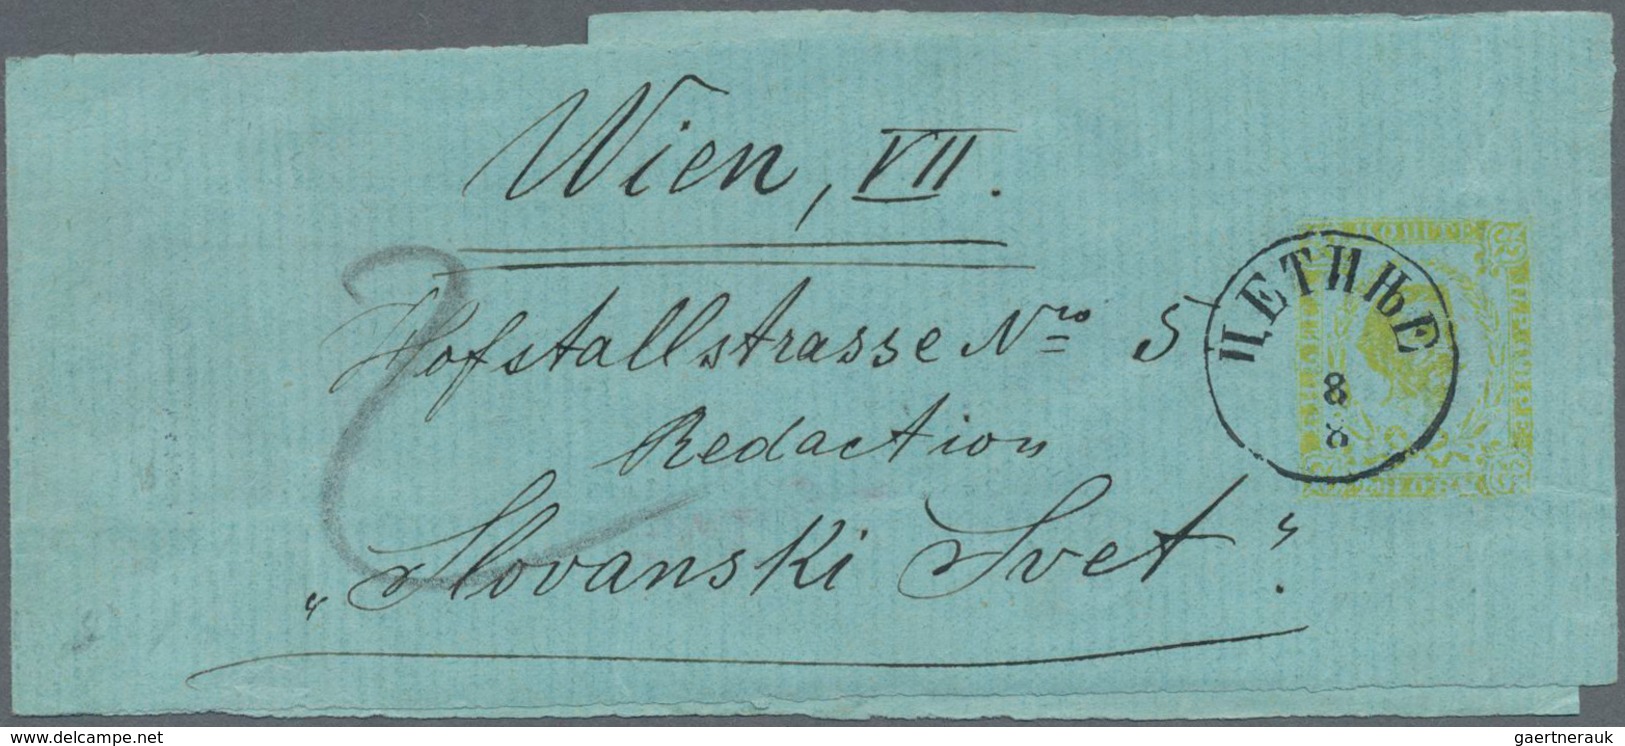 Wien, VII.
Hofstallstrasse Nro 5
Redaction
„Slovanski Svet“.
ЦЕТИЊЕ
8
8
2
www.delcampe.net
gaertnerauk